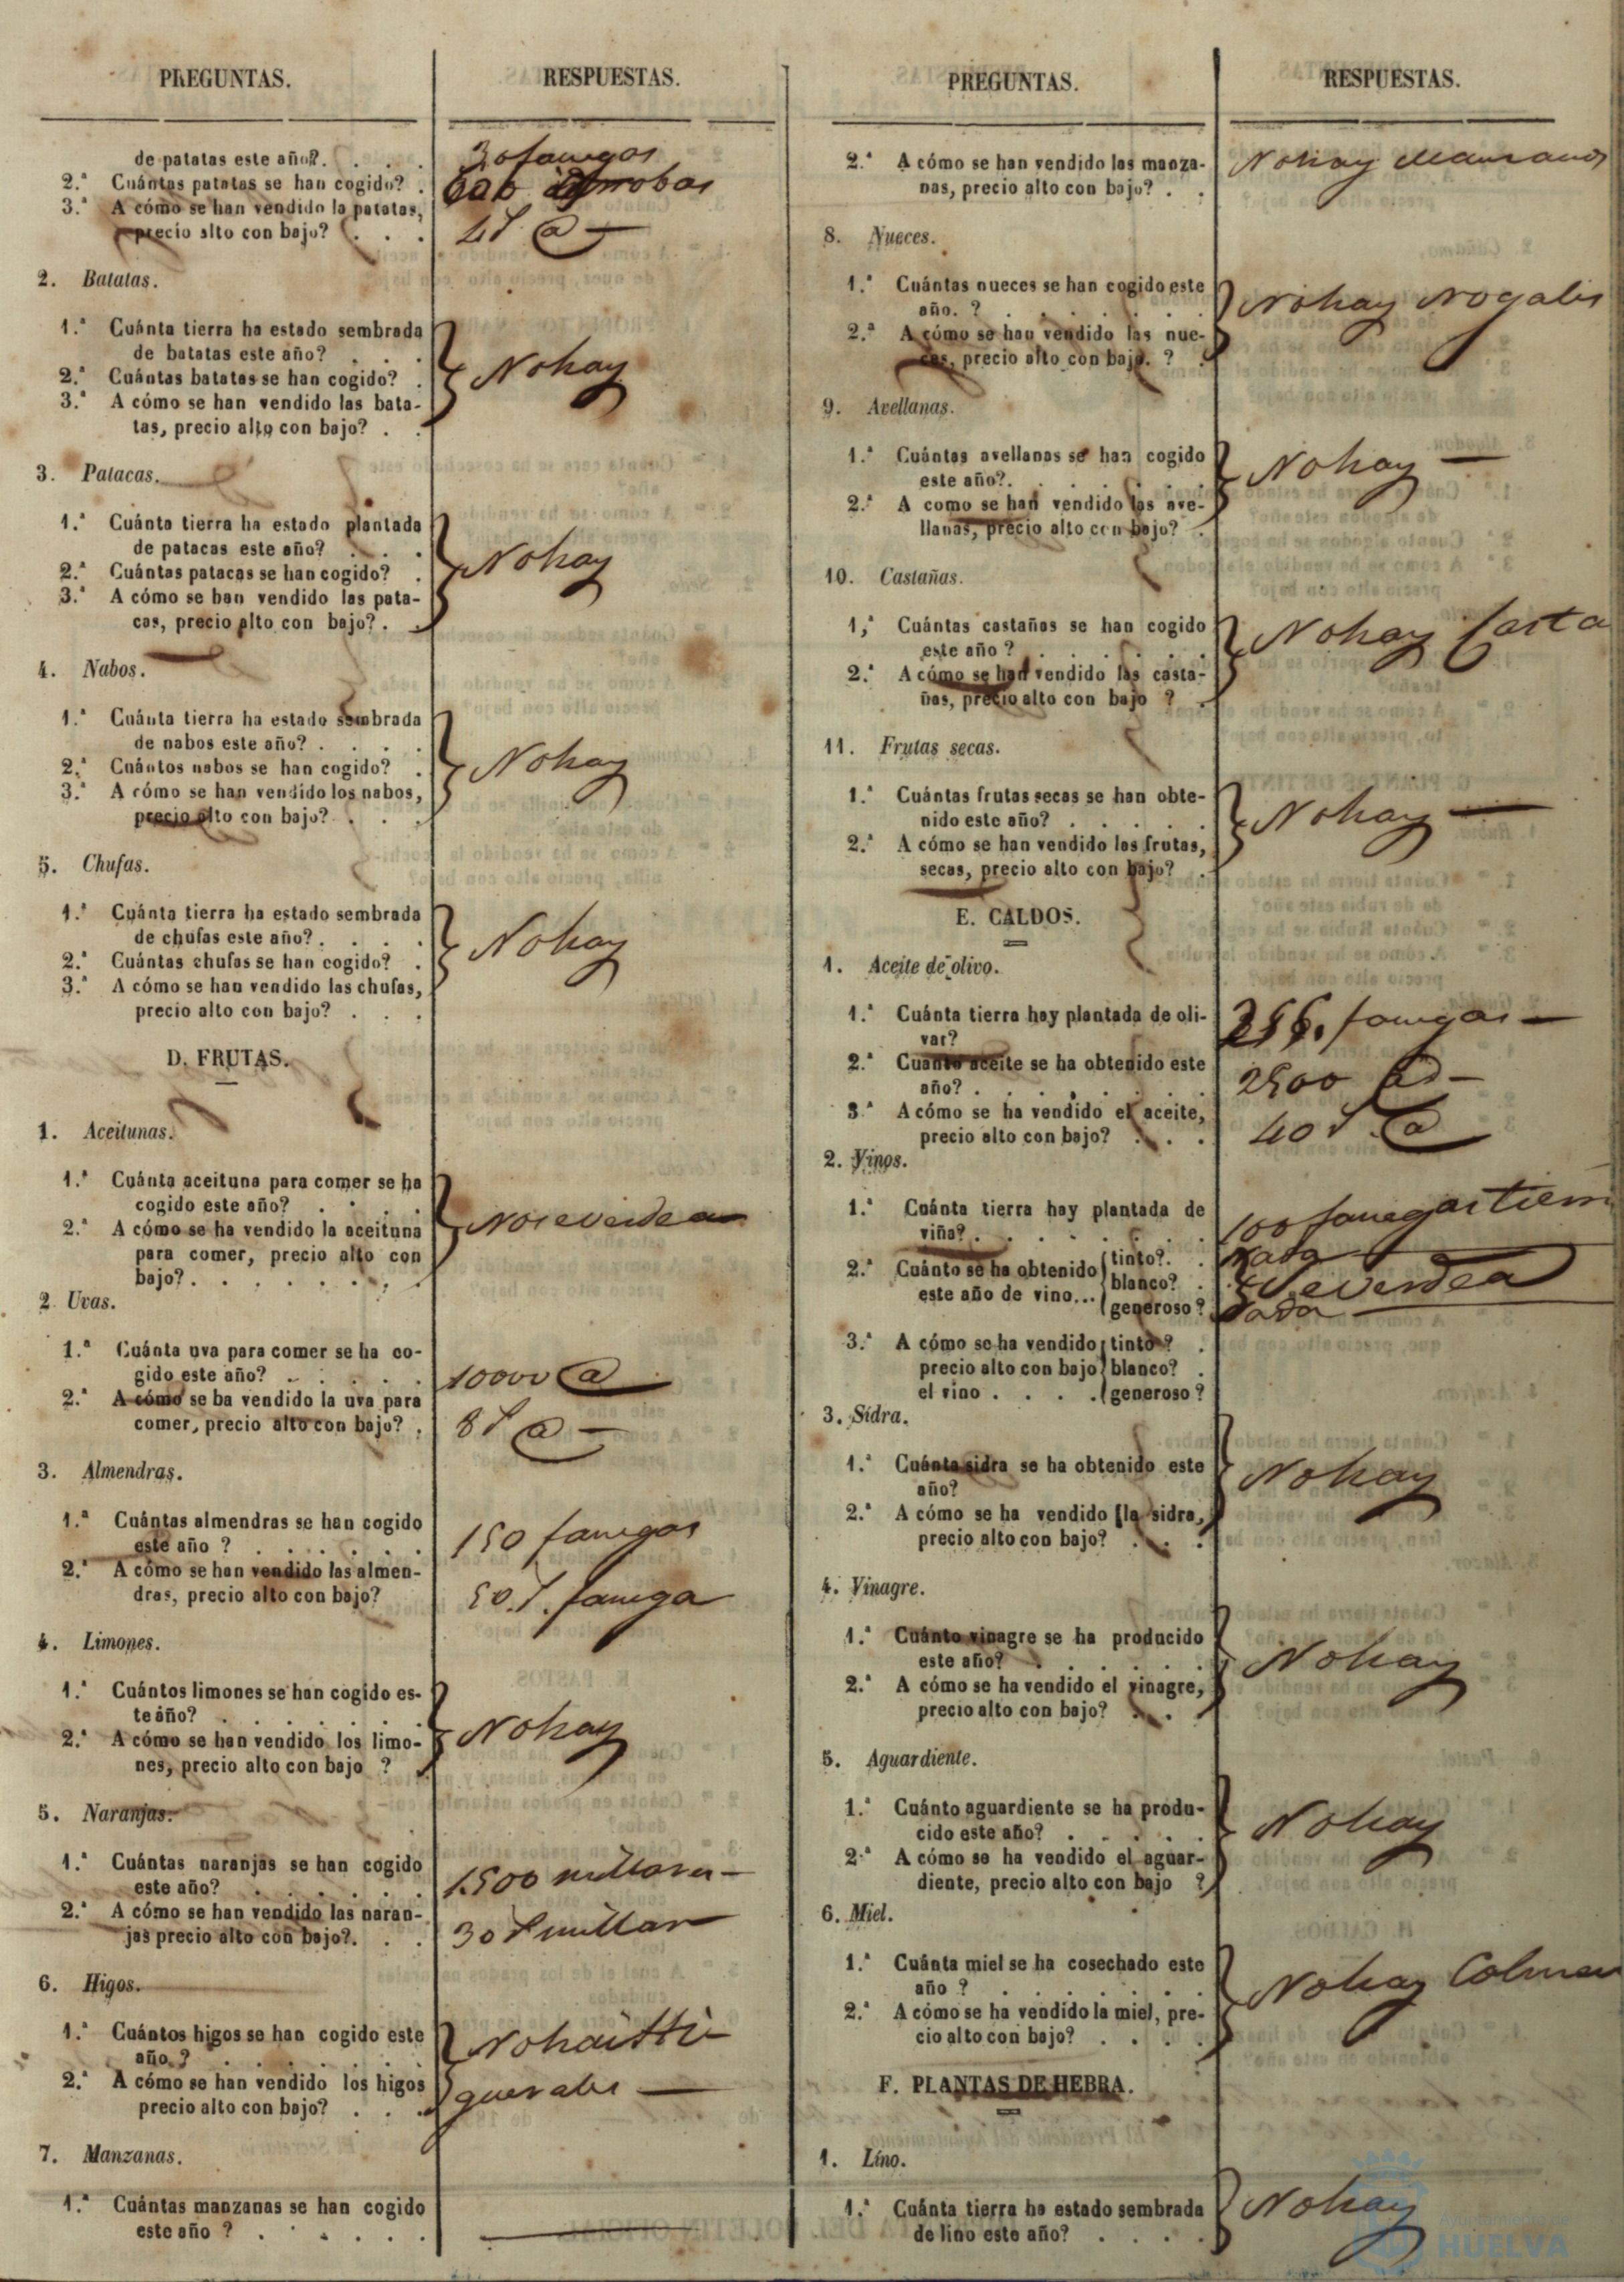 PREGUNTAS.
RESPUESTAS.
de patatas este año?. . . .
30 fanegas
2.ª Cuántas patatas se han cogido? .
600 arrobas
3.ª A cómo se han vendido la patatas,
precio alto con bajo? . . .
4 r @
2. Batatas.
1.ª Cuánta tierra ha estado sembrada
de batatas este año? . . .
2.ª Cuántas batatas se han cogido? .
No hay
3.ª A cómo se han vendido las bata-
tas, precio alto con bajo? . .
3. Patacas.
1.ª Cuánta tierra ha estado plantada
de patacas este año? . . .
2.ª Cuántas patacas se han cogido? .
No hay
3.ª A cómo se han vendido las pata-
cas, precio alto con bajo? . .
4. Nabos.
1.ª Cuánta tierra ha estado sembrada
de nabos este año? . . . .
2.ª Cuántos nabos se han cogido? .
No hay
3.ª A cómo se han vendido los nabos,
precio alto con bajo? . . .
5. Chufas.
1.ª Cuánta tierra ha estado sembrada
de chufas este año? . . . .
2.ª Cuántas chufas se han cogido? .
No hay
3.ª A cómo se han vendido las chufas,
precio alto con bajo? . . .
D. FRUTAS.
1. Aceitunas.
1.ª Cuánta aceituna para comer se ha
cogido este año? . . . .
2.ª A cómo se ha vendido la aceituna
No se verdea
para comer, precio alto con
bajo? . . . . . . . .
2. Uvas.
1.ª Cuánta uva para comer se ha co-
gido este año? . . . . .
10000 @
2.ª A cómo se ha vendido la uva para
comer, precio alto con bajo? .
8 r @
3. Almendras.
1.ª Cuántas almendras se han cogido
este año ? . . . . . .
150 fanegas
2.ª A cómo se han vendido las almen-
dras, precio alto con bajo?
50 r. fanega
4. Limones.
1.ª Cuántos limones se han cogido es-
te año? . . . . . . .
2.ª A cómo se han vendido los limo-
No hay
nes, precio alto con bajo ? .
5. Naranjas.
1.ª Cuántas naranjas se han cogido
este año? . . . . . .
1.500 millares
2.ª A cómo se han vendido las naran-
jas precio alto con bajo?. . .
30 r millar
6. Higos.
1.ª Cuántos higos se han cogido este
año ? . . . . . . .
No hai
2.ª A cómo se han vendido los higos
precio alto con bajo? . . .
7. Manzanas.
1.ª Cuántas manzanas se han cogido
este año ? . . . . . .
PREGUNTAS.
RESPUESTAS.
2.ª A cómo se han vendido las manza-
nas, precio alto con bajo? . .
No hay Manzanos
8. Nueces.
1.ª Cuántas nueces se han cogido este
año. ? . . . . . . .
No hay Nogales
2.ª A cómo se han vendido las nue-
ces, precio alto con bajo. ? .
9. Avellanas.
1.ª Cuántas avellanas se han cogido
este año?. . . . . . .
No hay
2.ª A como se han vendido las ave-
llanas, precio alto con bajo? .
10. Castañas.
1,ª Cuántas castañas se han cogido
este año ? . . . . . .
No hay Casta
2.ª A cómo se han vendido las casta-
ñas, precio alto con bajo ? .
11. Frutas secas.
1.ª Cuántas frutas secas se han obte-
nido este año? . . . . .
No hay
2.ª A cómo se han vendido las frutas,
secas, precio alto con bajo? .
E. CALDOS.
1. Aceite de olivo.
1.ª Cuánta tierra hay plantada de oli-
var?
fanegas
2.ª Cuanto aceite se ha obtenido este
año? . . . . . . . .
2500 @s
3.ª A cómo se ha vendido el aceite,
precio alto con bajo? . . .
40 r. @
2. Vinos.
1.ª Cuánta tierra hay plantada de
viña? . . . . . . . .
100 fanegas tierra
2.ª Cuánto se ha obtenido
este año de vino...
tinto?. .
Nada
blanco? .
Se verdea
generoso?
Nada
3.ª A cómo se ha vendido
precio alto con bajo
el vino . . . .
tinto ? .
blanco? .
generoso ?
3. Sidra.
1.ª Cuánta sidra se ha obtenido este
año?
No hay
2.ª A cómo se ha vendido la sidra,
precio alto con bajo? . . .
4. Vinagre.
1.ª Cuánto vinagre se ha producido
este año? . . . . . .
No hay
2.ª A cómo se ha vendido el vinagre,
precio alto con bajo? . . .
5. Aguardiente.
1.ª Cuánto aguardiente se ha produ-
cido este año? . . . . .
No hay
2.ª A cómo se ha vendido el aguar-
diente, precio alto con bajo ?
6. Miel.
1.ª Cuánta miel se ha cosechado este
año ? . . . . . . .
No hay Colmen
2.ª A cómo se ha vendido la miel, pre-
cio alto con bajo? . . . .
F. PLANTAS DE HEBRA.
1. Líno.
1.ª Cuánta tierra ha estado sembrada
de lino este año? . . . .
No hay
Ayuntamiento de
HUELVA